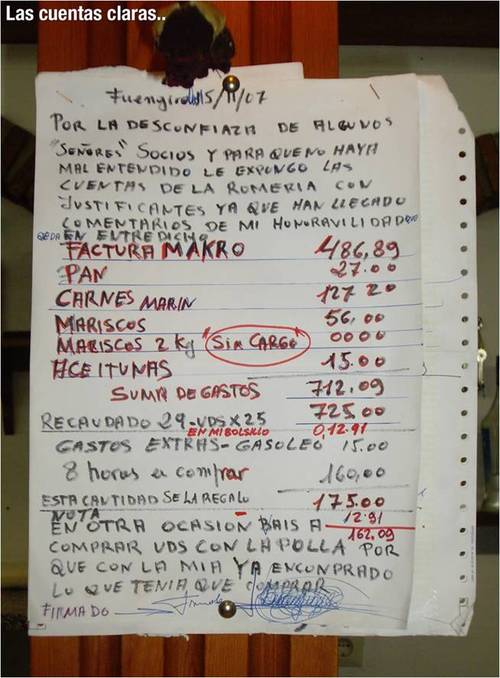 Las cuentas claras..
Fuengirola 15/11/07
POR LA DESCONFIAZA DE ALGUNOS
"SEÑORES" SOCIOS Y PARA QUE NO HAYA
MAL ENTENDIDO LE EXPONGO LAS
CUENTAS DE LA ROMERIA CON
JUSTIFICANTES YA QUE HAN LLEGADO
COMENTARIOS DE MI HONORAVILIDAD QUE
QEDA EN ENTREDICHO
FACTURA MAKRO 486,89
PAN 27.00
CARNES MARIN 127 20
MARISCOS 56,00
MARISCOS 2 Kg "SIN CARGO" 0000
ACEITUNAS 15.00
SUMA DE GASTOS 712.09
RECAUDADO 29-UDS X 25 725.00
EN MI BOLSILLO 0,12.91
GASTOS EXTRAS- GASOLEO 15.00
8 horas en comprar 160,00
ESTA CANTIDAD SE LA REGALO 175.00
NOTA 12.91
162.09
EN OTRA OCASION BAIS A
COMPRAR UDS CON LA POLLA POR
QUE CON LA MIA YA E COMPRADO
LO QUE TENIA QUE COMPRAR
FIRMADO